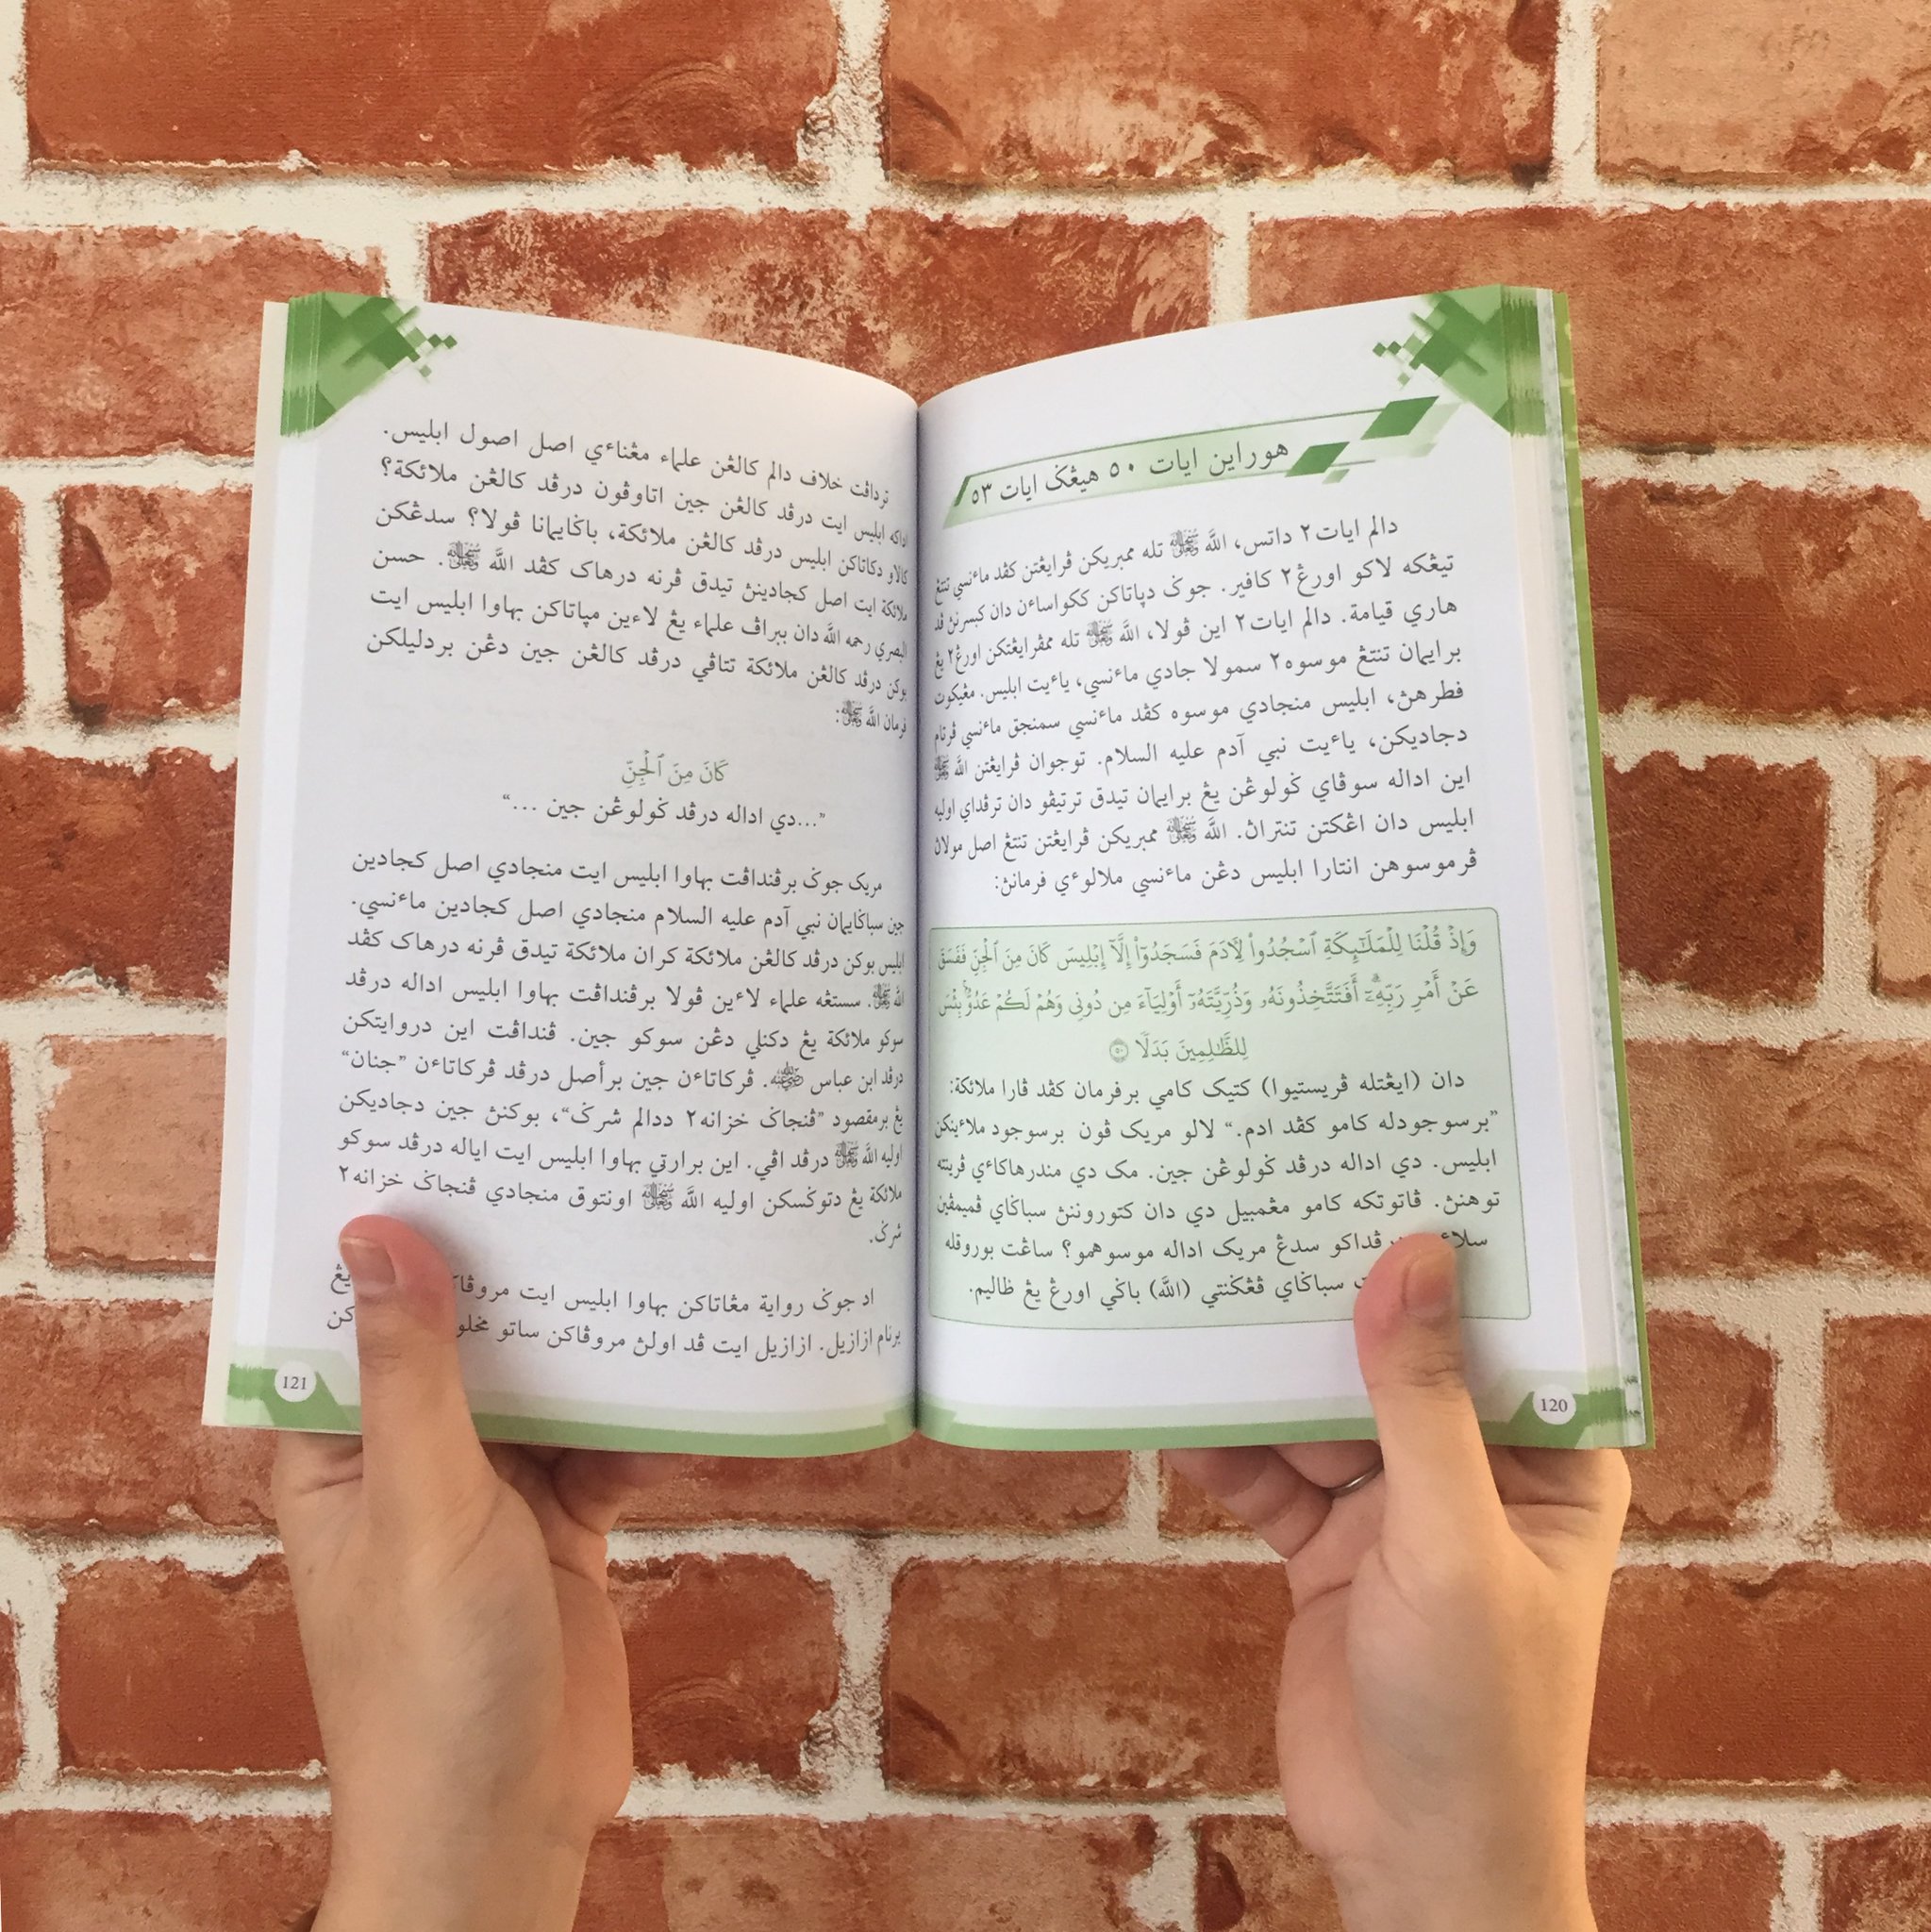 هوراين ايات ٥٠ هيڠݢ ايات ٥٣
دالم ايات٢ داتس، الله ﷻ تله ممبريکن ڤرايڠتن کڤد ماءنسي تنتڠ
تيڠکه لاکو اورڠ٢ کافير. جوݢ دڽاتاکن ککواساءن دان کبسرنڽ ڤد
هاري قيامة. دالم ايات٢ اين ڤولا، الله ﷻ تله ممڤرايڠتکن اورڠ٢ يڠ
برايمان تنتڠ موسوه٢ سمولا جادي ماءنسي، ياءيت ابليس. مڠيکوت
فطرهڽ، ابليس منجادي موسوه کڤد ماءنسي سمنجق ماءنسي ڤرتام
دجاديکن، ياءيت نبي آدم عليه السلام. توجوان ڤرايڠتن الله ﷻ
اين اداله سوڤاي ݢولوڠن يڠ برايمان تيدق ترتيڤو دان ترڤداي اوليه
ابليس دان اڠکتن تنتراڽ. الله ﷻ ممبريکن ڤرايڠتن تنتڠ اصل مولاڽ
ڤرموسوهن انتارا ابليس دڠن ماءنسي ملالوءي فرمانڽ:
وَإِذْ قُلْنَا لِلْمَلَٰٓئِكَةِ ٱسْجُدُوا۟ لِـَٔادَمَ فَسَجَدُوٓا۟ إِلَّآ إِبْلِيسَ كَانَ مِنَ ٱلْجِنِّ فَفَسَقَ
عَنْ أَمْرِ رَبِّهِۦٓ ۗ أَفَتَتَّخِذُونَهُۥ وَذُرِّيَّتَهُۥٓ أَوْلِيَآءَ مِن دُونِى وَهُمْ لَكُمْ عَدُوٌّۢ ۚ بِئْسَ
لِلظَّٰلِمِينَ بَدَلًا ۝٥٠
دان (ايڠتله ڤريستيوا) کتيک کامي برفرمان کڤد ڤارا ملائكة:
”برسوجودله کامو کڤد ادم.“ لالو مريک ڤون برسوجود ملاءينکن
ابليس. دي اداله درڤد ݢولوڠن جين. مک دي مندرهاکاءي ڤرينته
توهنڽ. ڤاتوتکه کامو مڠمبيل دي دان کتوروننڽ سباݢاي ڤميمڤين
ڤداکو سدڠ مريک اداله موسوهمو؟ ساڠت بوروقله
سباݢاي ڤڠݢنتي (الله) باݢي اورڠ يڠ ظاليم.
120
تردافت خلاف دالم کالڠن علماء مڠناءي اصل اصول ابليس.
اداکه ابليس ايت درڤد کالڠن جين اتاوڤون درڤد کالڠن ملائكة؟
کالاو دکاتاکن ابليس درڤد کالڠن ملائكة، باݢايمانا ڤولا؟ سدڠکن
ملائكة ايت اصل کجادينڽ تيدق ڤرنه درهاک کڤد الله ﷻ. حسن
البصري رحمه الله دان ببراڤ علماء يڠ لاءين مڽاتاکن بهاوا ابليس ايت
بوکن درڤد کالڠن ملائكة تتاڤي درڤد کالڠن جين دڠن بردليلکن
فرمان الله ﷻ:
كَانَ مِنَ ٱلْجِنِّ
”...دي اداله درڤد ݢولوڠن جين ...“
مريک جوݢ برڤنداڤت بهاوا ابليس ايت منجادي اصل کجادين
جين سباݢايمان نبي آدم عليه السلام منجادي اصل کجادين ماءنسي.
ابليس بوکن درڤد کالڠن ملائكة کران ملائكة تيدق ڤرنه درهاک کڤد
الله ﷻ. سستڠه علماء لاءين ڤولا برڤنداڤت بهاوا ابليس اداله درڤد
سوکو ملائكة يڠ دکنلي دڠن سوکو جين. ڤنداڤت اين دروايتکن
درڤد ابن عباس رضي الله عنه. ڤرکاتاءن جين برأصل درڤد ڤرکاتاءن ”جنان“
يڠ برمقصود ”ڤنجاݢ خزانه٢ ددالم شرݢ“، بوکنڽ جين دجاديکن
اوليه الله ﷻ درڤد اڤي. اين برارتي بهاوا ابليس ايت اياله درڤد سوکو
ملائكة يڠ دتوݢسکن اوليه الله ﷻ اونتوق منجادي ڤنجاݢ خزانه٢
شرݢ.
اد جوݢ رواية مڠاتاکن بهاوا ابليس ايت يڠ
برنام ازازيل. ازازيل ايت ڤد اولڽ مروڤاکن ساتو
121